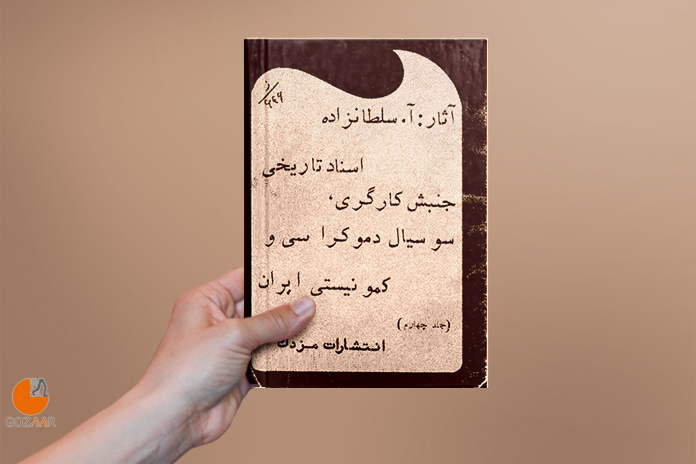 آثار: آ. سلطانزاده
اسناد تاریخی
جنبش کارگری،
سوسیال دموکراسی و
کمونیستی ایران
(جلد چهارم)
انتشارات مزدک
GOZAAR